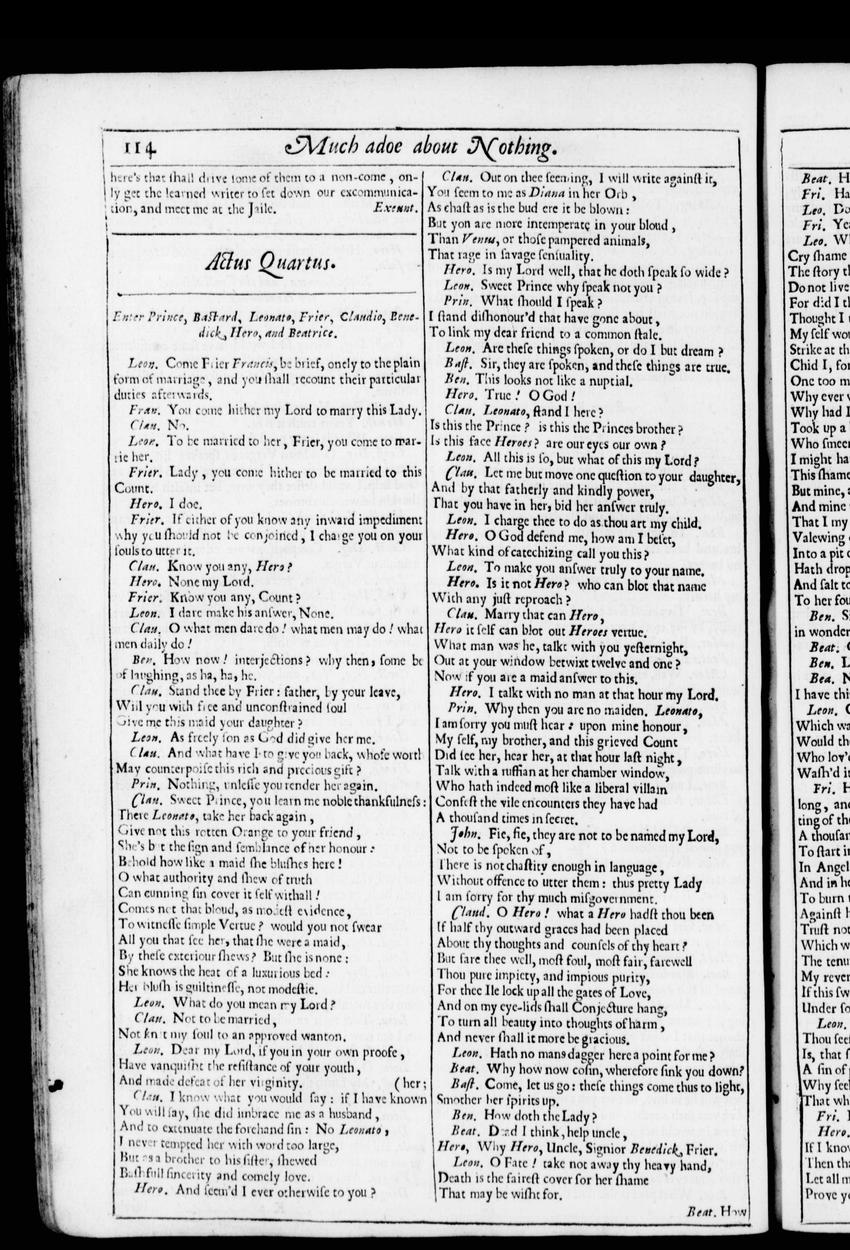 114 Much adoe about Nothing.
here's that ſhall drive ſome of them to a non-come, on-
ly get the learned writer to ſet down our excommunica-
tion, and meet me at the Jaile. Exeunt.
Actus Quartus.
Enter Prince, Baſtard, Leonato, Frier, Claudio, Bene-
dick, Hero, and Beatrice.
Leon. Come Frier Francis, be brief, onely to the plain
form of marriage, and you ſhall recount their particular
duties afterwards.
Fran. You come hither my Lord to marry this Lady.
Clau. No.
Leon. To be married to her, Frier, you come to mar-
rie her.
Frier. Lady, you come hither to be married to this
Count.
Hero. I doe.
Frier. If either of you know any inward impediment
why you ſhould not be conjoined, I charge you on your
ſouls to utter it.
Clau. Know you any, Hero?
Hero. None my Lord.
Frier. Know you any, Count?
Leon. I dare make his anſwer, None.
Clau. O what men dare do! what men may do! what
men daily do!
Ben. How now! interjections? why then, ſome be
of laughing, as ha, ha, he.
Clau. Stand thee by Frier: father, by your leave,
Will you with free and unconſtrained ſoul
Give me this maid your daughter?
Leon. As freely ſon as God did give her me.
Clau. And what have I to give you back, whoſe worth
May counterpoiſe this rich and precious gift?
Prin. Nothing, unleſſe you render her again.
Clau. Sweet Prince, you learn me noble thankfulneſs:
There Leonato, take her back again,
Give not this rotten Orange to your friend,
She's but the ſign and ſemblance of her honour:
Behold how like a maid ſhe bluſhes here!
O what authority and ſhew of truth
Can cunning ſin cover it ſelf withall!
Comes not that bloud, as modeſt evidence,
To witneſſe ſimple Vertue? would you not ſwear
All you that ſee her, that ſhe were a maid,
By theſe exteriour ſhews? But ſhe is none:
She knows the heat of a luxurious bed:
Her bluſh is guiltineſſe, not modeſtie.
Leon. What do you mean my Lord?
Clau. Not to be married,
Not knit my ſoul to an approved wanton.
Leon. Dear my Lord, if you in your own proofe,
Have vanquiſht the reſiſtance of your youth,
And made defeat of her virginity. (her;
Clau. I know what you would ſay: if I have known
You will ſay, ſhe did imbrace me as a husband,
And to extenuate the forehand ſin: No Leonato,
I never tempted her with word too large,
But as a brother to his ſiſter, ſhewed
Baſhfull ſincerity and comely love.
Hero. And ſeem'd I ever otherwiſe to you?
Clau. Out on thee ſeeming, I will write againſt it,
You ſeem to me as Diana in her Orb,
As chaſt as is the bud ere it be blown:
But you are more intemperate in your bloud,
Than Venus, or thoſe pampered animals,
That rage in ſavage ſenſuality.
Hero. Is my Lord well, that he doth ſpeak ſo wide?
Leon. Sweet Prince why ſpeak not you?
Prin. What ſhould I ſpeak?
I ſtand diſhonour'd that have gone about,
To link my dear friend to a common ſtale.
Leon. Are theſe things ſpoken, or do I but dream?
Baſt. Sir, they are ſpoken, and theſe things are true.
Ben. This looks not like a nuptial.
Hero. True! O God!
Clau. Leonato, ſtand I here?
Is this the Prince? is this the Princes brother?
Is this face Heroes? are our eyes our own?
Leon. All this is ſo, but what of this my Lord?
Clau. Let me but move one queſtion to your daughter,
And by that fatherly and kindly power,
That you have in her, bid her anſwer truly.
Leon. I charge thee to do as thou art my child.
Hero. O God defend me, how am I beſet,
What kind of catechizing call you this?
Leon. To make you anſwer truly to your name.
Hero. Is it not Hero? who can blot that name
With any juſt reproach?
Clau. Marry that can Hero,
Hero it ſelf can blot out Heroes vertue.
What man was he, talkt with you yeſternight,
Out at your window betwixt twelve and one?
Now if you are a maid anſwer to this.
Hero. I talkt with no man at that hour my Lord.
Prin. Why then you are no maiden. Leonato,
I am ſorry you muſt hear: upon mine honour,
My ſelf, my brother, and this grieved Count
Did ſee her, hear her, at that hour laſt night,
Talk with a ruffian at her chamber window,
Who hath indeed moſt like a liberal villain
Confeſt the vile encounters they have had
A thouſand times in ſecret.
John. Fie, fie, they are not to be named my Lord,
Not to be ſpoken of,
There is not chaſtity enough in language,
Without offence to utter them: thus pretty Lady
I am ſorry for thy much miſgovernment.
Claud. O Hero! what a Hero hadſt thou been
If half thy outward graces had been placed
About thy thoughts and counſels of thy heart?
But fare thee well, moſt foul, moſt fair, farewell
Thou pure impiety, and impious purity,
For thee Ile lock up all the gates of Love,
And on my eye-lids ſhall Conjecture hang,
To turn all beauty into thoughts of harm,
And never ſhall it more be gracious.
Leon. Hath no mans dagger here a point for me?
Beat. Why how now coſin, wherefore ſink you down?
Baſt. Come, let us go: theſe things come thus to light,
Smother her ſpirits up.
Ben. How doth the Lady?
Beat. Dead I think, help uncle,
Hero, Why Hero, Uncle, Signior Benedick, Frier.
Leon. O Fate! take not away thy heavy hand,
Death is the faireſt cover for her ſhame
That may be wiſht for.
Beat. How
Beat. H
Fri. Ha
Leo. Do
Fri. Yea
Leo. Wh
Cry ſhame
The ſtory th
Do not live
For did I th
Thought I
My ſelf wou
Strike at th
Chid I, for
One too m
Why ever
Why had I
Took up a
Who ſmeer
I might ha
This ſhame
But mine, a
And mine
That I my
Valewing
Into a pit o
Hath drop
And ſalt to
To her fou
Ben. S
in wonder
Beat. O
Ben. L
Bea. N
I have thi
Leon. C
Which wa
Would the
Who lov'd
Waſh'd it
Fri. H
long, and
ting of th
A thouſan
To ſtart in
In Angel
And in he
To burn
Againſt h
Truſt not
Which w
The tenu
My rever
If this ſw
Under ſo
Leon.
Thou ſeeſ
Is, that ſ
A ſin of
Why ſeek
That wh
Fri. L
Hero.
If I know
Then tha
Let all m
Prove yo